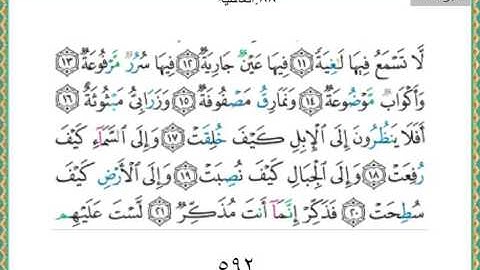 ٨٨. الغاشية
لَّا تَسْمَعُ فِيهَا لَٰغِيَةً ﴿١١﴾ فِيهَا عَيْنٌ جَارِيَةٌ ﴿١٢﴾ فِيهَا سُرُرٌ مَّرْفُوعَةٌ ﴿١٣﴾
وَأَكْوَابٌ مَّوْضُوعَةٌ ﴿١٤﴾ وَنَمَارِقُ مَصْفُوفَةٌ ﴿١٥﴾ وَزَرَابِيُّ مَبْثُوثَةٌ ﴿١٦﴾
أَفَلَا يَنظُرُونَ إِلَى الْإِبِلِ كَيْفَ خُلِقَتْ ﴿١٧﴾ وَإِلَى السَّمَاءِ كَيْفَ
رُفِعَتْ ﴿١٨﴾ وَإِلَى الْجِبَالِ كَيْفَ نُصِبَتْ ﴿١٩﴾ وَإِلَى الْأَرْضِ كَيْفَ
سُطِحَتْ ﴿٢٠﴾ فَذَكِّرْ إِنَّمَا أَنتَ مُذَكِّرٌ ﴿٢١﴾ لَّسْتَ عَلَيْهِم
٥٩٢